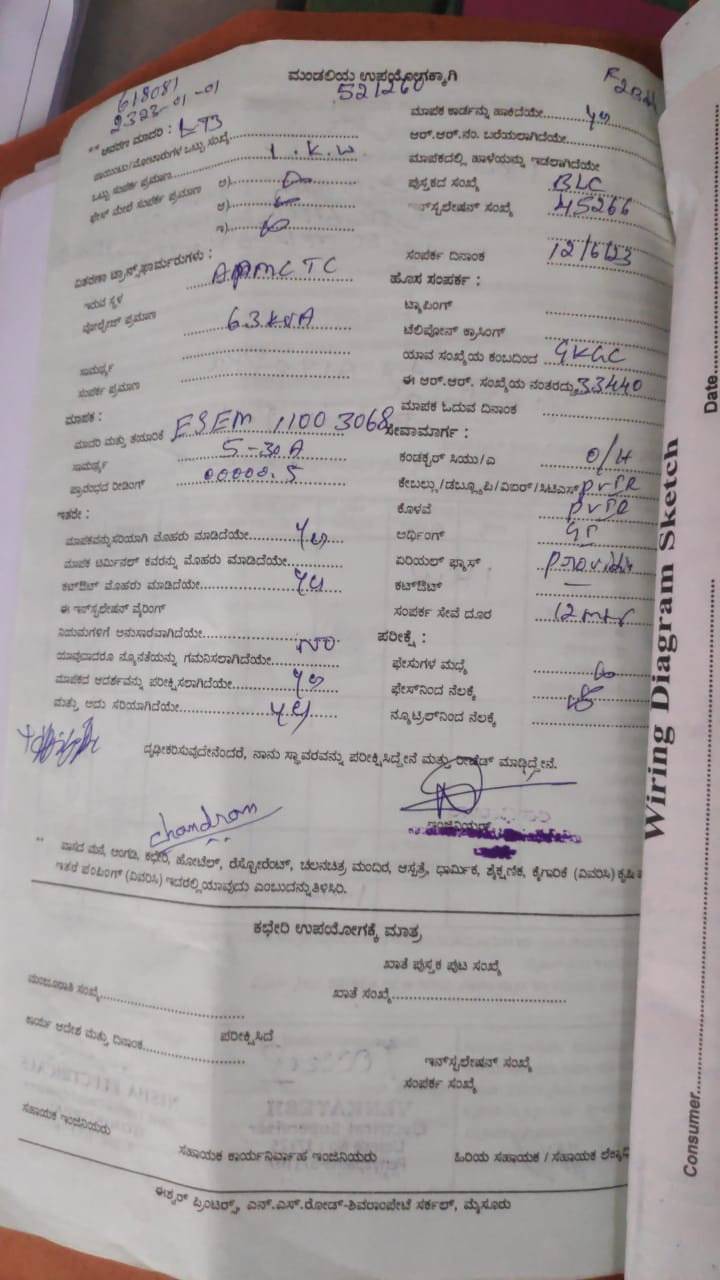 ಮಂಡಲಿಯ ಉಪಯೋಗಕ್ಕಾಗಿ
618081
521260
2323-01-01
** ಆವರಣ ಮಾದರಿ : LT3
ಪಾಯಿಂಟು/ಮೋಟಾರುಗಳ ಒಟ್ಟು ಸಂಖ್ಯೆ
ಒಟ್ಟು ಸಂಪರ್ಕ ಪ್ರಮಾಣ 1.K.W
ಫೇಸ್ ಮೇಲೆ ಸಂಪರ್ಕ ಪ್ರಮಾಣ ಅ)
ಆ)
ಇ)
ವಿತರಣಾ ಟ್ರಾನ್ಸ್‌ಫಾರ್ಮರುಗಳು :
ಇರುವ ಸ್ಥಳ APMC TC
ವೋಲ್ಟೇಜ್ ಪ್ರಮಾಣ 63 KVA
ಸಾಮರ್ಥ್ಯ
ಸಂಪರ್ಕ ಪ್ರಮಾಣ
ಮಾಪಕ :
ಮಾದರಿ ಮತ್ತು ತಯಾರಿಕೆ ESEM 11003068
ಸಾಮರ್ಥ್ಯ 5-30A
ಪ್ರಾರಂಭದ ರೀಡಿಂಗ್ 00000.5
ಇತರೇ :
ಮಾಪಕವನ್ನು ಸರಿಯಾಗಿ ಮೊಹರು ಮಾಡಿದೆಯೇ
ಮಾಪಕ ಟರ್ಮಿನಲ್ ಕವರನ್ನು ಮೊಹರು ಮಾಡಿದೆಯೇ
ಕಟ್‌ಔಟ್ ಮೊಹರು ಮಾಡಿದೆಯೇ
ಈ ಇನ್‌ಸ್ಟಲೇಷನ್ ವೈರಿಂಗ್
ನಿಯಮಗಳಿಗೆ ಅನುಸಾರವಾಗಿದೆಯೇ
ಯಾವುದಾದರೂ ನ್ಯೂನತೆಯನ್ನು ಗಮನಿಸಲಾಗಿದೆಯೇ NO
ಮಾಪಕದ ಆದರ್ಶವನ್ನು ಪರೀಕ್ಷಿಸಲಾಗಿದೆಯೇ
ಮತ್ತು ಅದು ಸರಿಯಾಗಿದೆಯೇ
ಮಾಪಕ ಕಾರ್ಡನ್ನು ಹಾಕಿದೆಯೇ
ಆರ್.ಆರ್.ನಂ. ಬರೆಯಲಾಗಿದೆಯೇ
ಮಾಪಕದಲ್ಲಿ ಹಾಳೆಯನ್ನು ಇಡಲಾಗಿದೆಯೇ
ಪುಸ್ತಕದ ಸಂಖ್ಯೆ BLC
ಇನ್‌ಸ್ಟಲೇಷನ್ ಸಂಖ್ಯೆ 45266
ಸಂಪರ್ಕ ದಿನಾಂಕ 12/6/23
ಹೊಸ ಸಂಪರ್ಕ :
ಟ್ಯಾಪಿಂಗ್
ಟೆಲಿಫೋನ್ ಕ್ರಾಸಿಂಗ್
ಯಾವ ಸಂಖ್ಯೆಯ ಕಂಬದಿಂದ
ಈ ಆರ್.ಆರ್. ಸಂಖ್ಯೆಯ ನಂತರದ್ದು 33440
ಮಾಪಕ ಓದುವ ದಿನಾಂಕ
ಸೇವಾಮಾರ್ಗ :
ಕಂಡಕ್ಟರ್ ಸಿಯು/ಎ O/H
ಕೇಬಲ್ಲು/ಡಬ್ಲ್ಯೂಪಿ/ವಿಐಆರ್/ಸಿಟಿಎಸ್
ಕೊಳವೆ
ಅರ್ಥಿಂಗ್ GI
ಏರಿಯಲ್ ಫ್ಯೂಸ್
ಕಟ್‌ಔಟ್ —
ಸಂಪರ್ಕ ಸೇವೆ ದೂರ 12 mtr
ಪರೀಕ್ಷೆ :
ಫೇಸುಗಳ ಮಧ್ಯೆ
ಫೇಸ್‌ನಿಂದ ನೆಲಕ್ಕೆ
ನ್ಯೂಟ್ರಲ್‌ನಿಂದ ನೆಲಕ್ಕೆ
ದೃಢೀಕರಿಸುವುದೇನೆಂದರೆ, ನಾನು ಸ್ಥಾವರವನ್ನು ಪರೀಕ್ಷಿಸಿದ್ದೇನೆ ಮತ್ತು ಮಾಡಿದ್ದೇನೆ.
chandram
ಇಂಜಿನಿಯರ್
** ವಾಸದ ಮನೆ, ಅಂಗಡಿ, ಕಛೇರಿ, ಹೋಟೆಲ್, ರೆಸ್ಟೋರೆಂಟ್, ಚಲನಚಿತ್ರ ಮಂದಿರ, ಆಸ್ಪತ್ರೆ, ಧಾರ್ಮಿಕ, ಶೈಕ್ಷಣಿಕ, ಕೈಗಾರಿಕೆ (ವಿವರಿಸಿ) ಕೃಷಿ
ಇತರೆ ಪಂಪಿಂಗ್ (ವಿವರಿಸಿ) ಇದರಲ್ಲಿ ಯಾವುದು ಎಂಬುದನ್ನು ತಿಳಿಸಿರಿ.
ಕಛೇರಿ ಉಪಯೋಗಕ್ಕೆ ಮಾತ್ರ
ಖಾತೆ ಪುಸ್ತಕ ಪುಟ ಸಂಖ್ಯೆ
ಮಂಜೂರಾತಿ ಸಂಖ್ಯೆ
ಖಾತೆ ಸಂಖ್ಯೆ
ಕಾರ್ಯ ಆದೇಶ ಮತ್ತು ದಿನಾಂಕ
ಪರೀಕ್ಷಿಸಿದೆ
ಇನ್‌ಸ್ಟಲೇಷನ್ ಸಂಖ್ಯೆ
ಸಂಪರ್ಕ ಸಂಖ್ಯೆ
ಸಹಾಯಕ ಇಂಜಿನಿಯರು
ಸಹಾಯಕ ಕಾರ್ಯನಿರ್ವಾಹ ಇಂಜಿನಿಯರು
ಹಿರಿಯ ಸಹಾಯಕ / ಸಹಾಯಕ
ಈಶ್ವರ್ ಪ್ರಿಂಟರ್ಸ್, ಎನ್.ಎಸ್.ರೋಡ್-ಶಿವರಾಂಪೇಟೆ ಸರ್ಕಲ್, ಮೈಸೂರು
Wiring Diagram Sketch
Date
Consumer